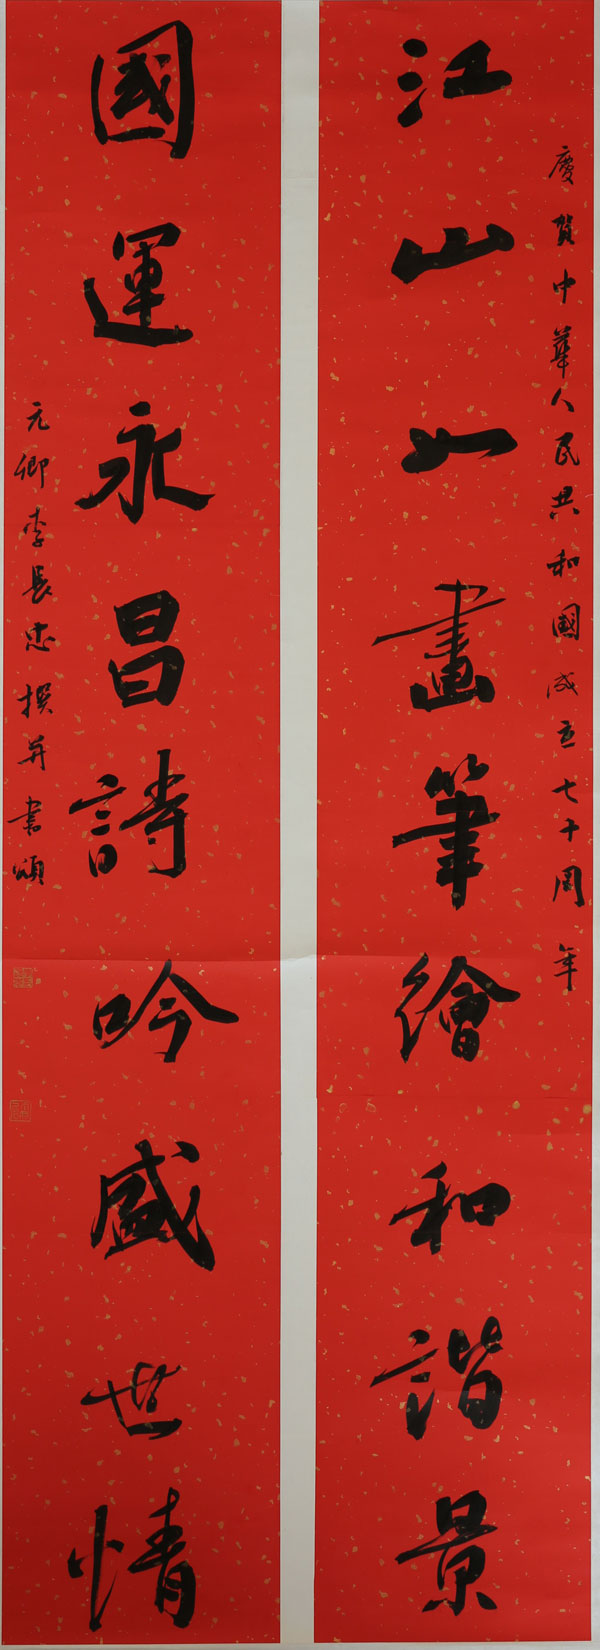 慶賀中華人民共和國成立七十周年
江山如畫筆繪和諧景
國運永昌詩吟盛世情
元卿李長忠撰并書頌